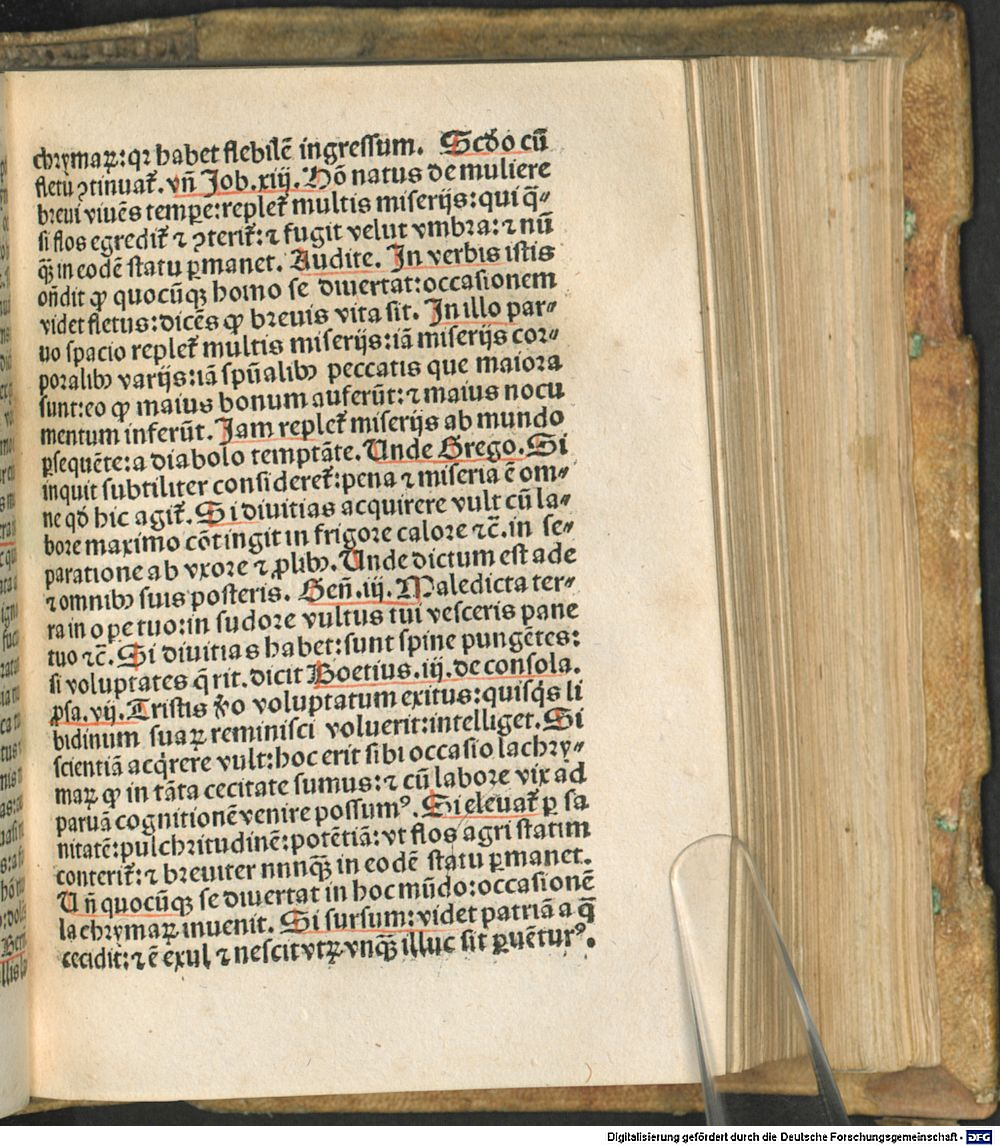 chrymaꝝ: qꝛ habet flebilē ingressum. Scd̄o cū
fletū ꝯtinuat᷑. vn̄ Job. xiij. Hō natus de muliere
breui viuēs tempe: replet᷑ multis miserijs: qui q̄⸗
si flos egredit᷑ ⁊ ꝯterit᷑: ⁊ fugit velut vmbra: ⁊ nū
qꝫ̄ in eodē statu ꝑmanet. Audite. In verbis istis
on̄dit ꝙ quocūqꝫ homo se diuertat: occasionem
videt fletus: dicēs ꝙ breuis vita sit. In illo par⸗
uo spacio replet᷑ multis miserijs: iā miserijs cor⸗
poralibꝫ varijs: iā spūalibꝫ peccatis que maiora
sunt: eo ꝙ maius bonum auferūt: ⁊ maius nocu
mentum inferūt. Jam replet᷑ miserijs ab mundo
ꝑsequēte: a diabolo temptāte. Unde Grego. Si
inquit subtiliter consideret᷑: pena ⁊ miseria ē om⸗
ne qd̄ hic agit᷑. Si diuitias acquirere vult cū la⸗
bore maximo cōtingit in frigore calore ⁊c̄. in se⸗
paratione ab vxore ⁊ ꝓlibꝫ. Unde dictum est ade
⁊ omnibꝫ suis posteris. Gen̄. iij. Maledicta ter⸗
ra in ope tuo: in sudore vultus tui vesceris pane
tuo ⁊c̄. Si diuitias habet: sunt spine pungētes:
si voluptates q̄rit. dicit Boetius. iij. de consola.
ꝓsa. vij. Tristis v̄o voluptatum exitus: quisq̇s li
bidinum suaꝝ reminisci voluerit: intelliget. Si
scientiā acq̇rere vult: hoc erit sibi occasio lachry⸗
maꝝ ꝙ in tāta cecitate sumus: ⁊ cū labore vix ad
paruā cognitionē venire possumꝰ. Si eleuat᷑ ꝑ sa
nitatē: pulchritudinē: potētiā: vt flos agri statim
conterit᷑: ⁊ breuiter nnnqꝫ̄ in eodē statu ꝑmanet.
Un̄ quocūqꝫ se diuertat in hoc mūdo: occasionē
lachrymaꝝ inuenit. Si sursum: videt patriā a q̄
cecidit: ⁊ ē exul ⁊ nescit vtꝝ vnqꝫ̄ illuc sit ꝑuēturꝰ.
Digitalisierung gefördert durch die Deutsche Forschungsgemeinschaft - DFG